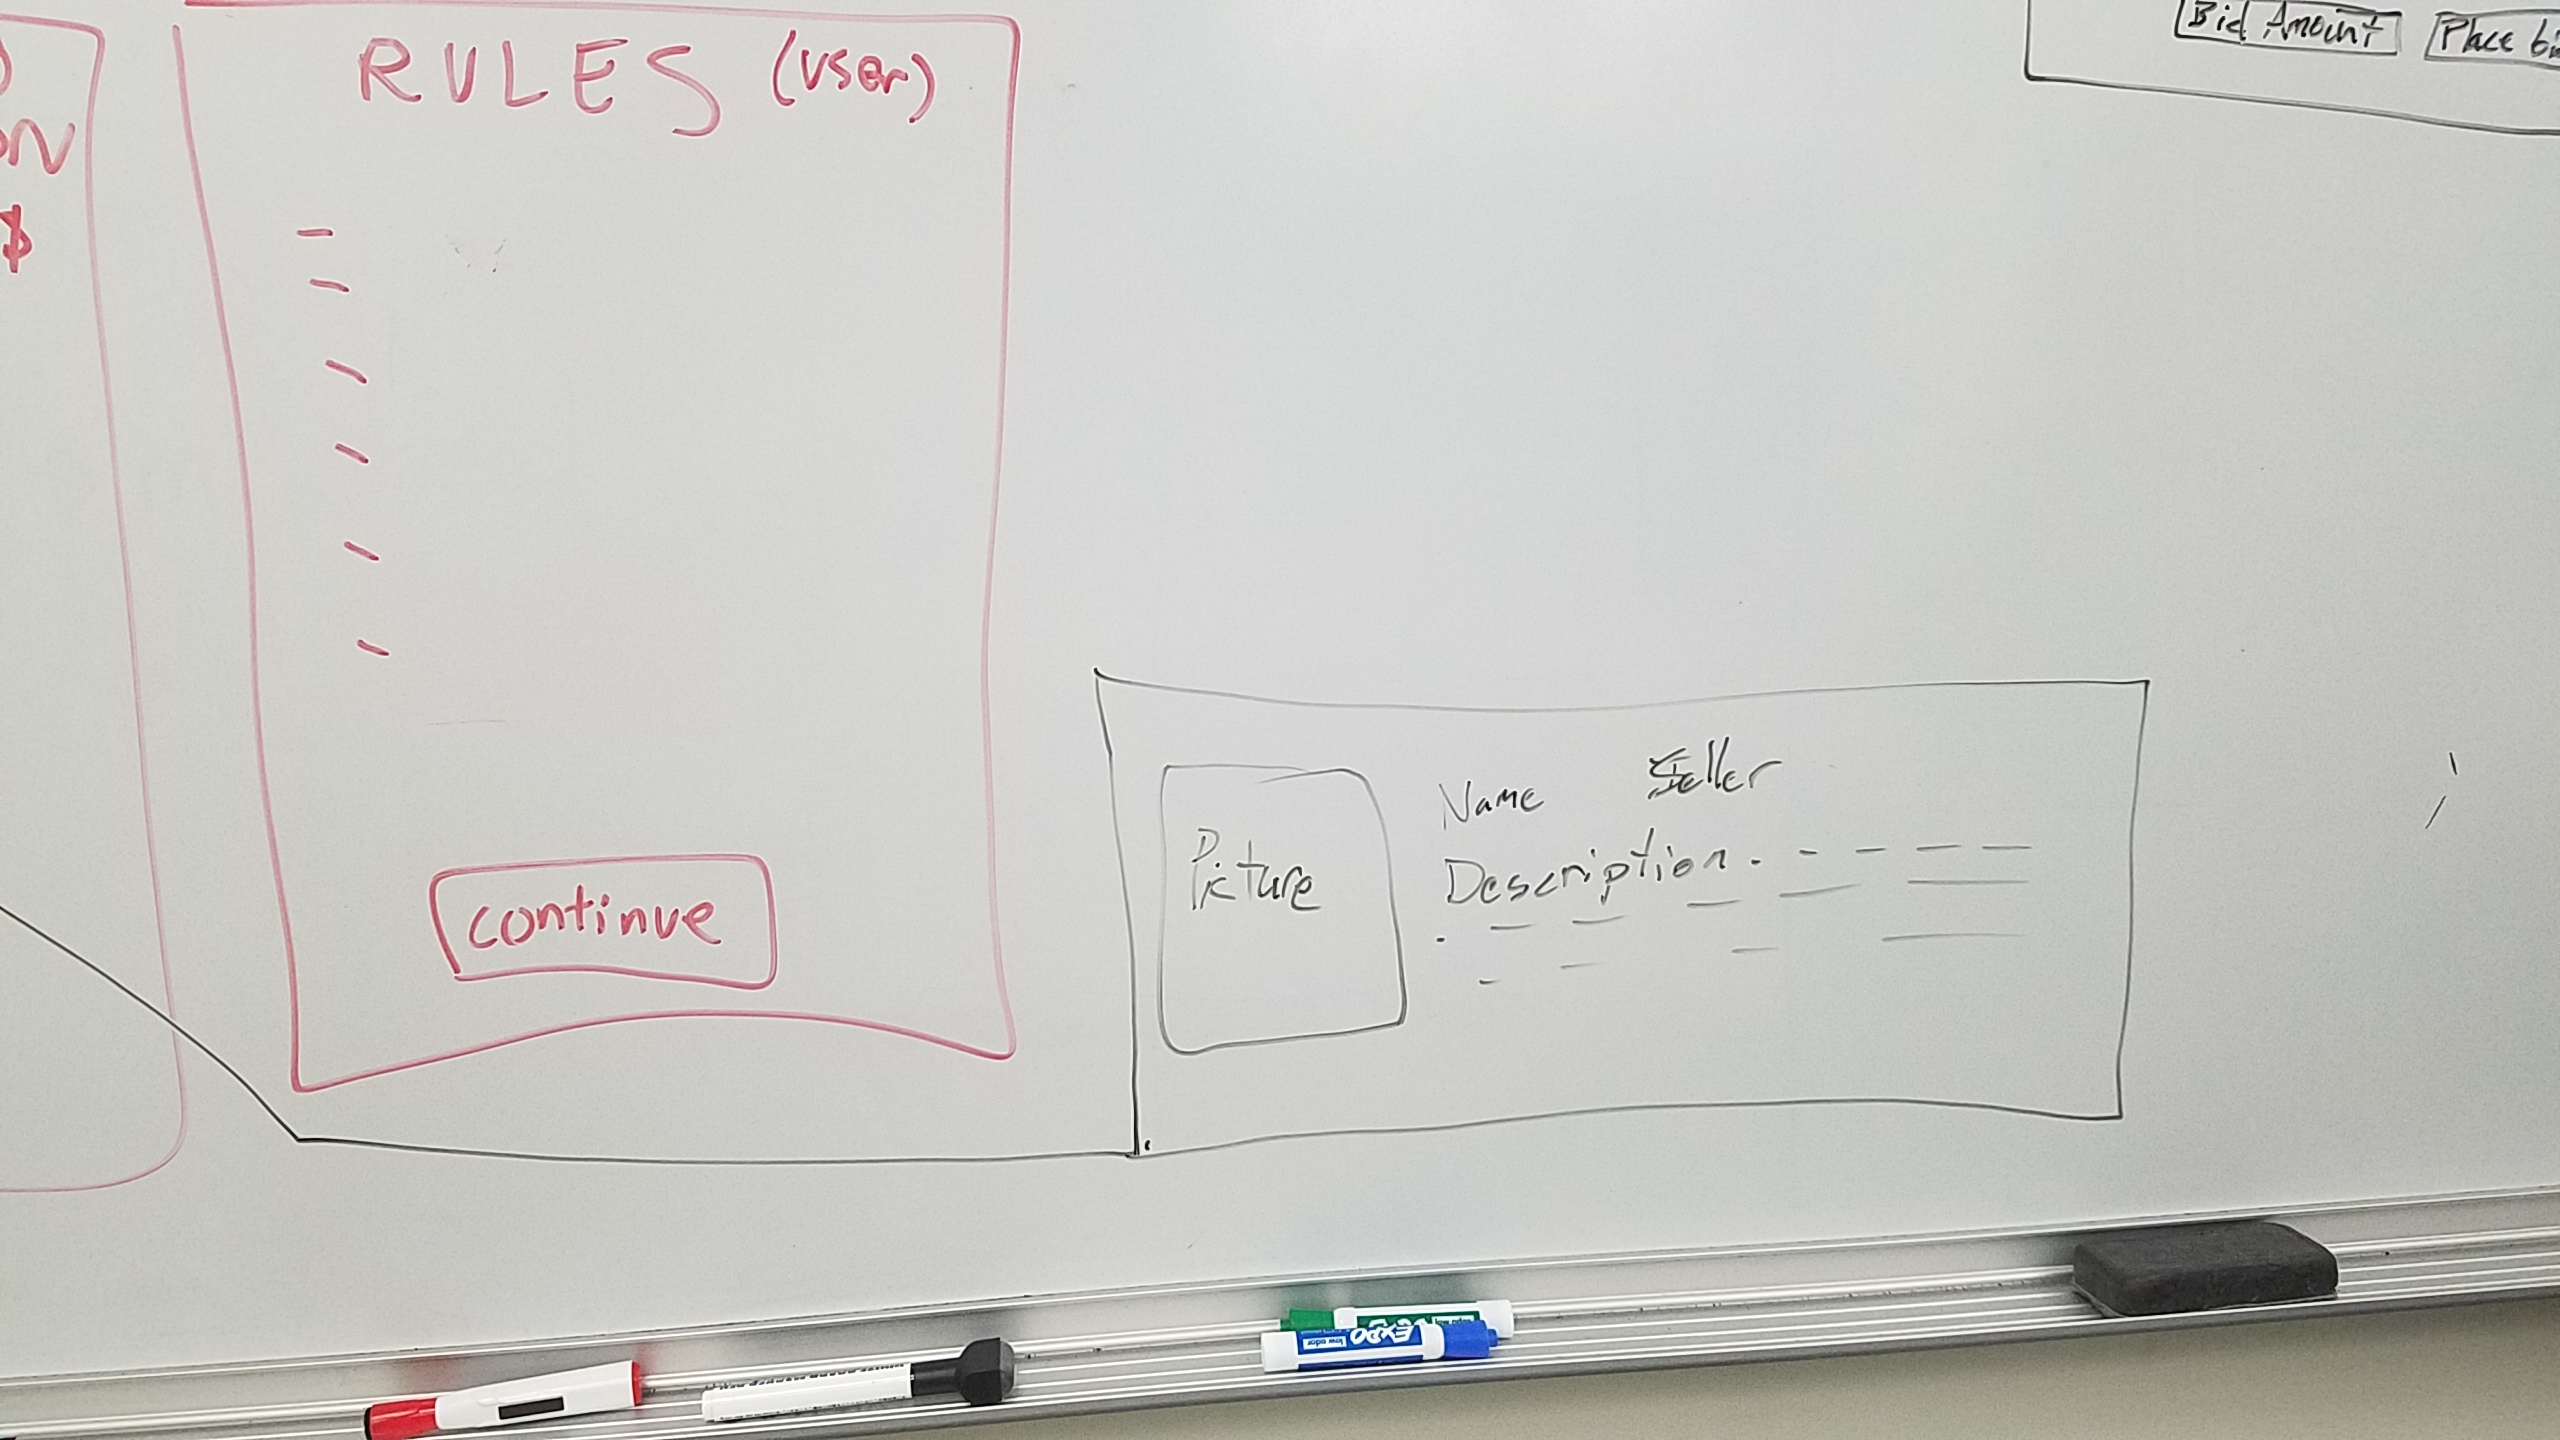 ON
$
RULES (user)
continue
Bid Amount
Place bi
Picture
Name Seller
Description
EXPO
low odor